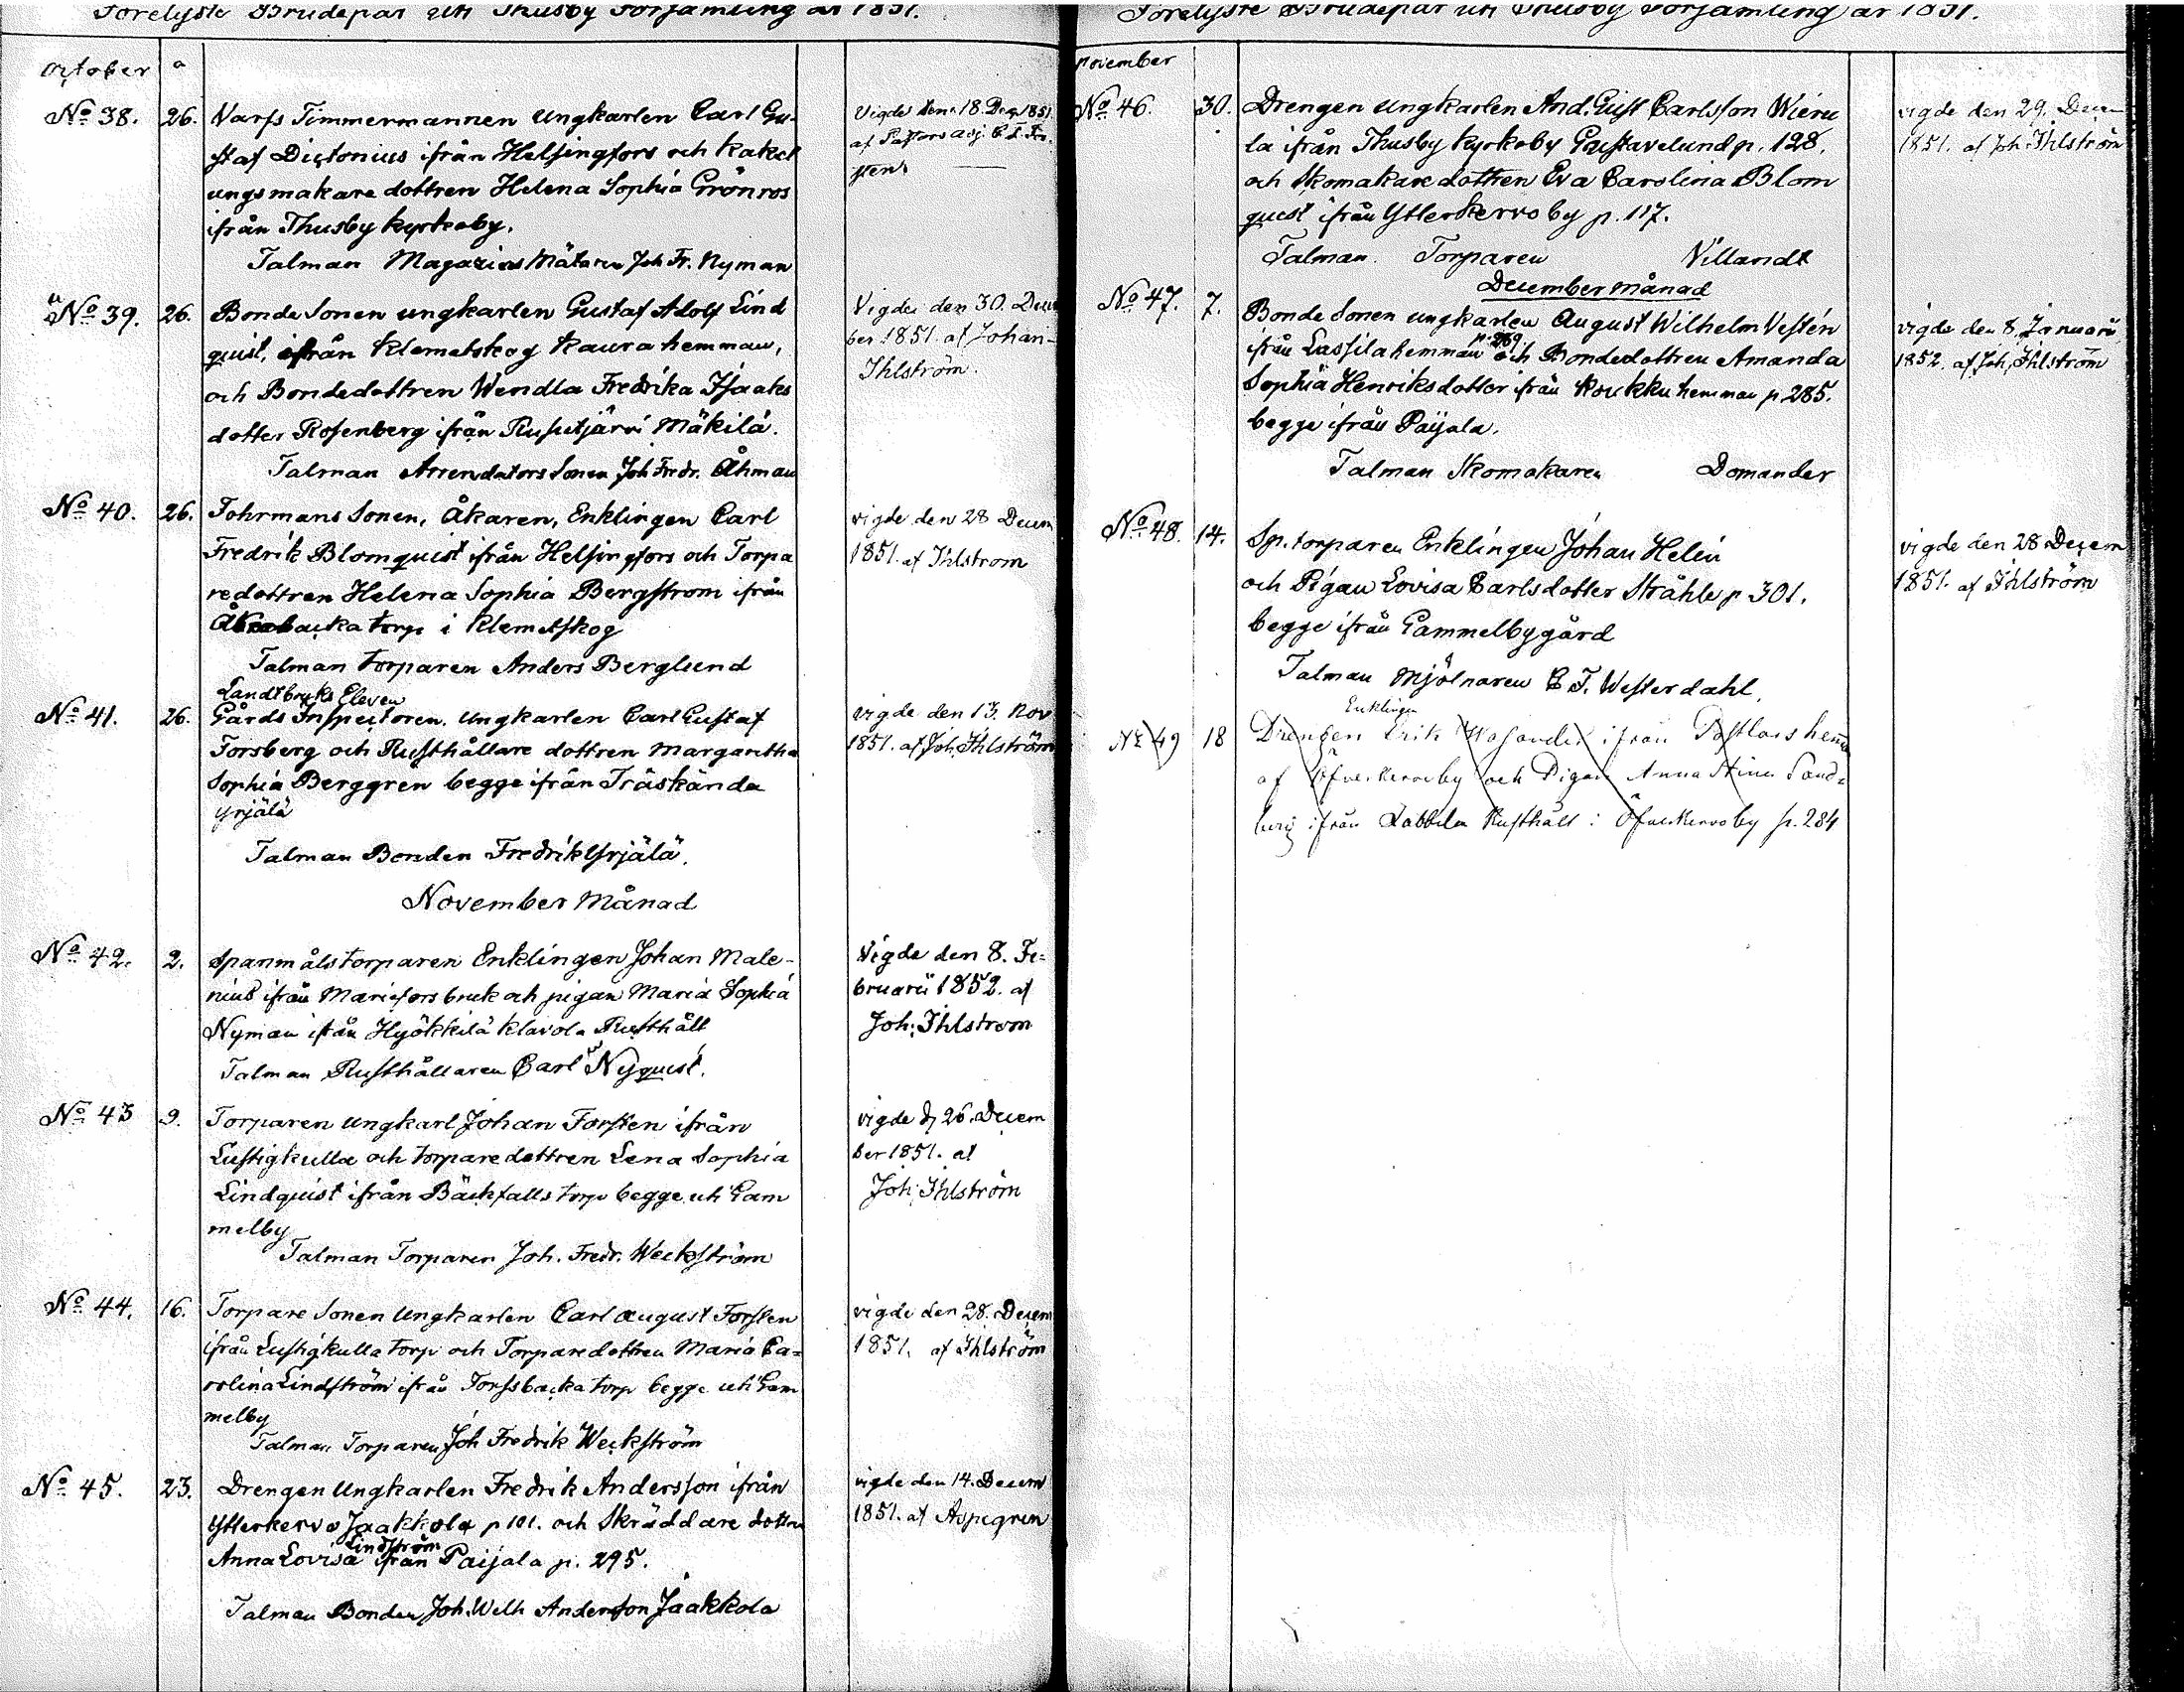 Förelyste Brudepar uti Thusby Församling år 1851.
October
No 38. 26. Varfs Timmermannen ungkarlen Carl Gu-
staf Dictonius ifrån Helsingfors och kakel
ungsmakare dottren Helena Sophia Grönros
ifrån Thusby kyrkoby.
Talman Magazins Mätaren Joh Fr. Nyman
Vigde den 18. Dec. 1851
af Pastors adj.
No 39. 26. Bonde Sonen ungkarlen Gustaf Adolf Lind
quist, ifrån Klemetskog Kaura hemman,
och Bondedottren Wendla Fredrika Isaaks
dotter Rosenberg ifrån Rusutjärvi Mäkilä.
Talman Arrendators Sonen Joh Fredr. Åhman
Vigde den 30. Decem
ber 1851. af Johan
Ihlström.
No 40. 26. Fohrmans Sonen, Åkaren, Enklingen Carl
Fredrik Blomquist ifrån Helsingfors och Torpa
redottren Helena Sophia Bergstrom ifrån
torp i Klemetskog
Talman torparen Anders Berglund
vigde den 28 Decem
1851. af Ihlstrom
Landtbruks Eleven
No 41. 26. Gårds Inspectoren, ungkarlen Carl Gustaf
Forsberg och Rusthållare dottren Margaretha
Sophia Berggren begge ifrån Träskända
Yrjälä
Talman Bonden Fredrik Yrjälä.
vigde den 13. Nov
1851. af Joh. Ihlström
November Månad
No 42. 2. Spanmåls torparen Enklingen Johan Male-
nius ifrån Mariefors bruk och pigan Maria Sophia
Nyman ifrån Hyökkilä Klavola Rusthåll
Talman Rusthållaren Carl Nyquist.
Vigde den 8. Fe=
bruarii 1852. af
Joh. Ihlstrom
No 43 9. Torparen ungkarl Johan Forsten ifrån
Lustigkulla och torparedottren Lena Sophia
Lindquist ifrån Bäckfalls torp begge uti Gam
melby
Talman Torparen Joh. Fredr. Weckström
vigde d. 26. Decem
ber 1851. af
Joh. Ihlström
No 44. 16. Torpare Sonen Ungkarlen Carl August Forsten
ifrån Lustigkulla torp och Torparedottren Maria Ca=
rolina Lindström ifrån Forssbacka torp begge uti Gam
melby
Talman Torparen Joh Fredrik Weckström
vigde den 28. Decem
1851. af Ihlström
No 45. 23. Drengen Ungkarlen Fredrik Andersson ifrån
Ytterkervo Jaakkola p 101. och Skräddare dottren
Lindström
Anna Lovisa ifrån Paijala p. 295.
Talman Bonden Joh. Wilh Andersson Jaakkola
vigde den 14. Decem
1851. af Aspegren
Förelyste Brudepar uti Thusby Församling år 1851.
November
No 46. 30. Drengen ungkarlen And. Gust Carlsson Wieru
la ifrån Thusby kyrkoby Gustavelund p. 128.
och Skomakare dottren Eva Carolina Blom
quist ifrån Ytterkervo by p. 117.
Talman. Torparen Villandt
vigde den 29. Decem
1851. af Joh. Ihlström
December månad
No 47. 7. Bonde Sonen ungkarlen August Wilhelm Vestén
ifrån Lassila hemman p. 269 och Bondedottren Amanda
Sophia Henriksdotter ifrån Koukku hemman p 285.
begge ifrån Paijala.
Talman Skomakaren Domander
vigde den 8. Januarii
1852. af Joh. Ihlström
No 48. 14. Sp. torparen Enklingen Johan Helin
och Pigan Lovisa Carlsdotter Stråhle p 301.
begge ifrån Gammelby gård
Talman Mjölnaren C. F. Westerdahl.
vigde den 28 Decem
1851. af Ihlström
Enklingen
No 49 18 Drengen Erik ifrån
af Öfverkervo by och Pigan Anna Stina Sand=
berg ifrån Labbila Rusthåll i Öfverkervo by p. 284